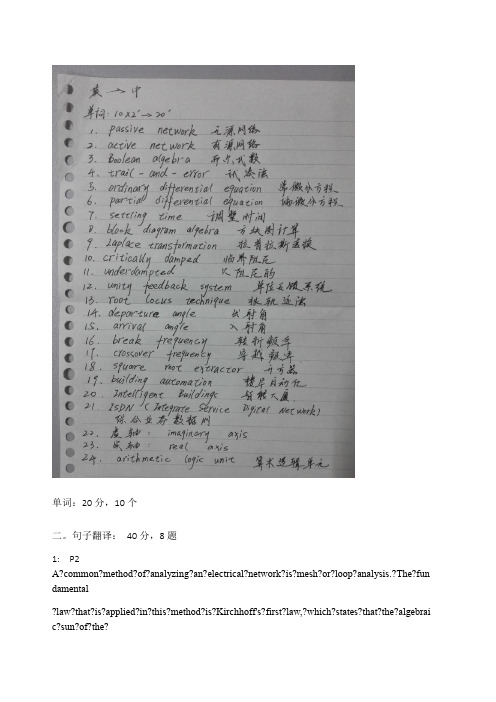 英 → 中
单词: 10×2' → 20'
1. passive network 无源网络
2. active network 有源网络
3. Boolean algebra 布尔代数
4. trail-and-error 试凑法
5. ordinary differential equation 常微分方程
6. partial differential equation 偏微分方程
7. settling time 调整时间
8. block diagram algebra 方块图计算
9. Laplace transformation 拉普拉斯变换
10. critically damped 临界阻尼
11. underdampted 欠阻尼的
12. unity feedback system 单位反馈系统
13. root locus technique 根轨迹法
14. departure angle 出射角
15. arrival angle 入射角
16. break frequency 转折频率
17. crossover frequency 穿越频率
18. square root extractor 开方器
19. building automation 楼宇自动化
20. Intelligent Buildings 智能大厦
21. ISDN (Integrate Service Digital Network)
综合业务数据网
22. 虚轴: imaginary axis
23. 实轴: real axis
24. arithmetic logic unit 算术逻辑单元
单词:20分,10个
二。句子翻译: 40分,8题
1: P2
A?common?method?of?analyzing?an?electrical?network?is?mesh?or?loop?analysis.?The?fun
damental
?law?that?is?applied?in?this?method?is?Kirchhoff's?first?law,?which?states?that?the?algebrai
c?sun?of?the?